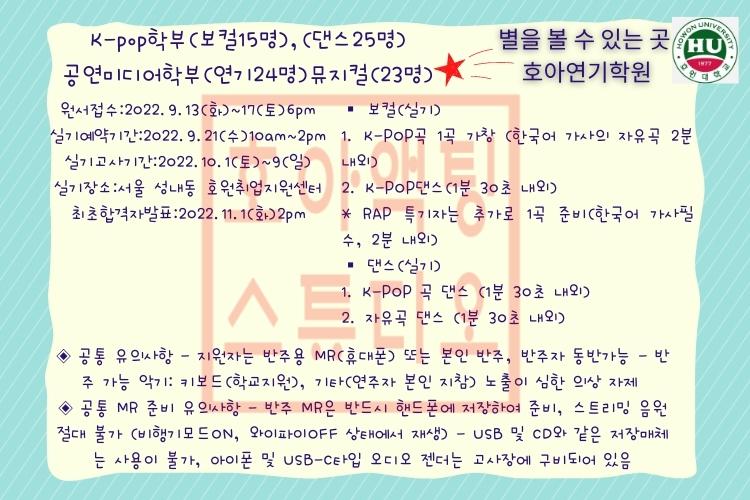 K-pop학부(보컬15명), (댄스25명)
공연미디어학부(연기24명)뮤지컬(23명)
별을 볼 수 있는 곳
호아연기학원
HOWON UNIVERSITY
HU
1977
호원대학교
원서접수:2022.9.13(화)~17(토)6pm
실기예약기간:2022.9.21(수)10am~2pm
실기고사기간:2022.10.1(토)~9(일)
실기장소:서울 성내동 호원취업지원센터
최초합격자발표:2022.11.1(화)2pm
▪ 보컬(실기)
1. K-POP곡 1곡 가창 (한국어 가사의 자유곡 2분
내외)
2. K-POP댄스(1분 30초 내외)
* RAP 특기자는 추가로 1곡 준비(한국어 가사필
수, 2분 내외)
▪ 댄스(실기)
1. K-POP 곡 댄스 (1분 30초 내외)
2. 자유곡 댄스 (1분 30초 내외)
호아액팅
스튜디오
◈ 공통 유의사항 - 지원자는 반주용 MR(휴대폰) 또는 본인 반주, 반주자 동반가능 - 반
주 가능 악기: 키보드(학교지원), 기타(연주자 본인 지참) 노출이 심한 의상 자제
◈ 공통 MR 준비 유의사항 - 반주 MR은 반드시 핸드폰에 저장하여 준비, 스트리밍 음원
절대 불가 (비행기모드ON, 와이파이OFF 상태에서 재생) - USB 및 CD와 같은 저장매체
는 사용이 불가, 아이폰 및 USB-C타입 오디오 젠더는 고사장에 구비되어 있음